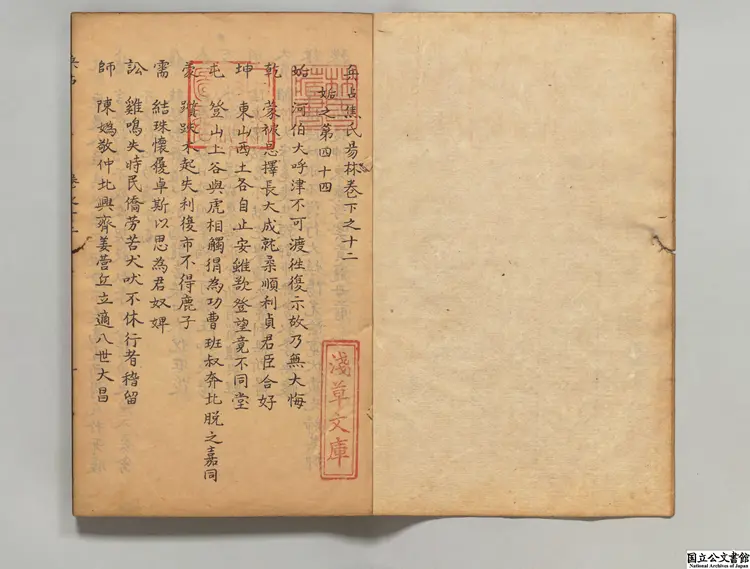 每占焦氏易林卷下之十二
姤之第四十四
姤 河伯大呼津不可渡徃復示故乃無大悔
乾 蒙被恩擇長大成就桑順利貞君臣合好
坤 東山西土各自止安雖欲登望竟不同堂
屯 登山上谷與虎相觸猬為功曹班叔奔北脱之嘉同
蒙 躓跌未起失利後市不得鹿子
需 結珠懷履卓斯以思為君奴婢
訟 雞鳴失時民僑勞苦犬吠不休行者稽留
師 陳媯敬仲北興齊姜營丘立適八世大昌
淺草文庫
国立公文書館
National Archives of Japan